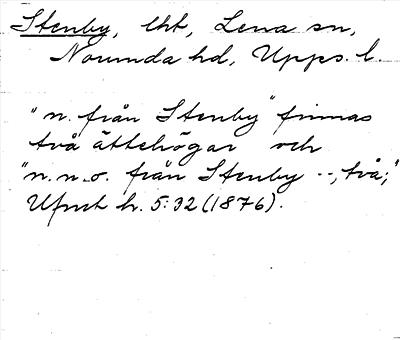 Stenby, lht, Lena sn,
Norunda hd, Upps. l.
"n. från Stenby" finnas
två ättehögar och
"n.n.o. från Stenby --, två;"
Ufmt h. 5:32 (1876).